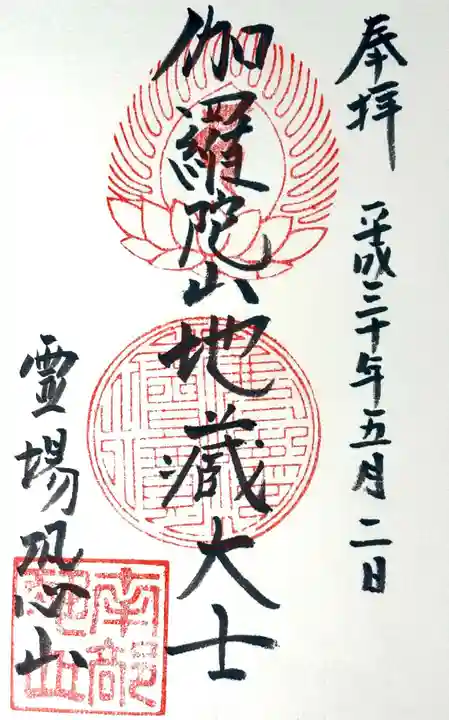 奉拝
平成三十年五月二日
伽羅陀山地蔵大士
霊場恐山